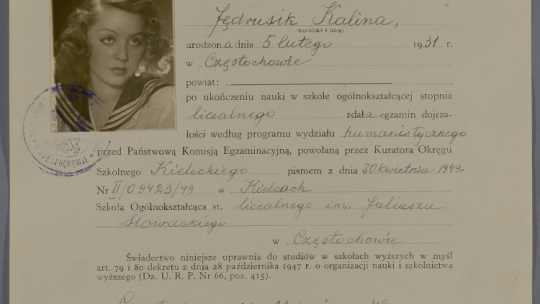 Jędrusik Kalina,
nazwisko i imię
urodzona dnia 5 lutego 1931 r.
w Częstochowie
powiat:
po ukończeniu nauki w szkole ogólnokształcącej stopnia
licealnego zdała egzamin dojrza-
łości według programu wydziału humanistycznego
przed Państwową Komisją Egzaminacyjną, powołaną przez Kuratora Okręgu
Szkolnego Kieleckiego pismem z dnia 30 kwietnia 1949.
Nr II/09423/49 w Kielcach
Szkoła Ogólnokształcąca st. licealnego im. Juliusza
Słowackiego
w Częstochowie
Świadectwo niniejsze uprawnia do studiów w szkołach wyższych w myśl
art. 79 i 80 dekretu z dnia 28 października 1947 r. o organizacji nauki i szkolnictwa
wyższego (Dz. U. R. P. Nr 66, poz. 415).